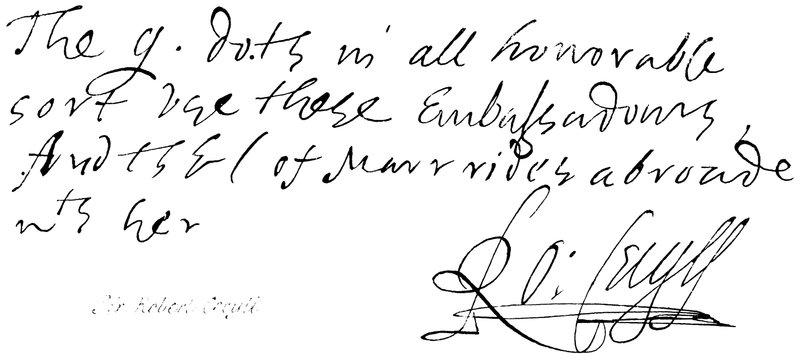 The q. doth in all honorable
sort vse these Embassadours,
And th E of Marr rides abroade
wth her
Ro: Cecyll
Sir Robert Cecyll